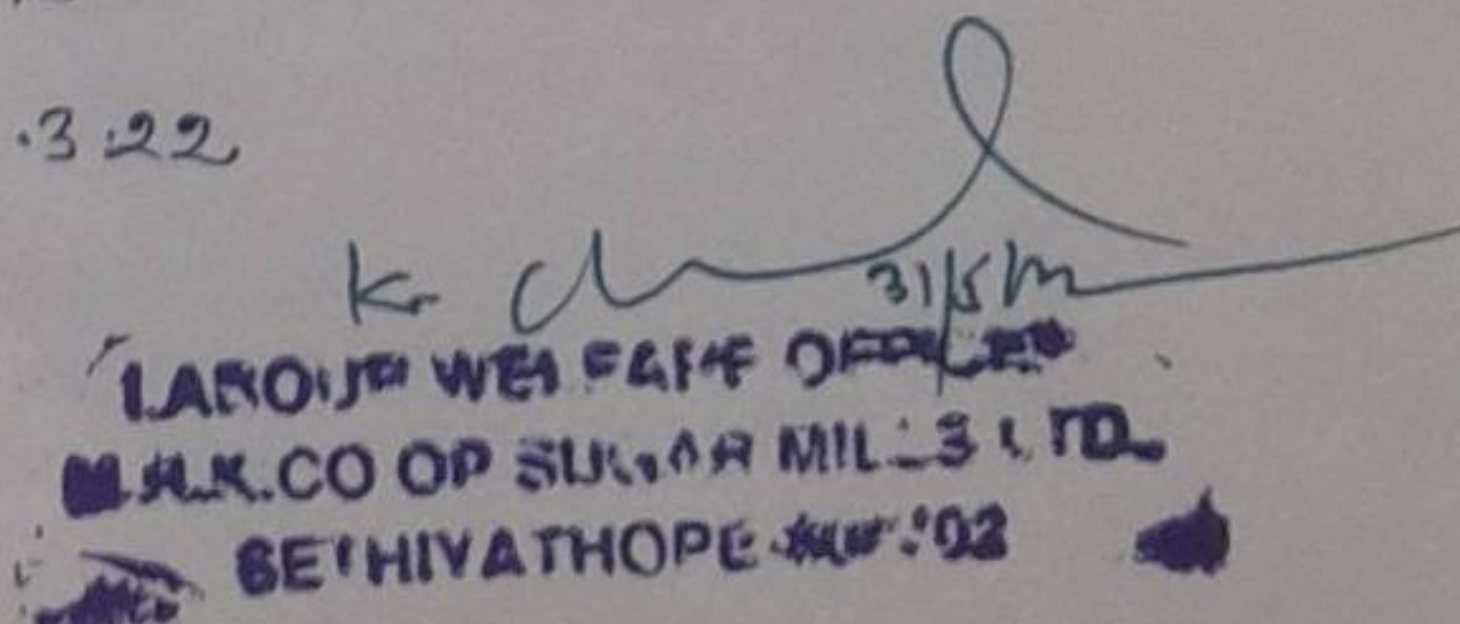 .3.22
K.
31/5/
LABOUR WELFARE OFFICER
M.R.K.CO OP SUGAR MILLS LTD.
SETHIYATHOPE